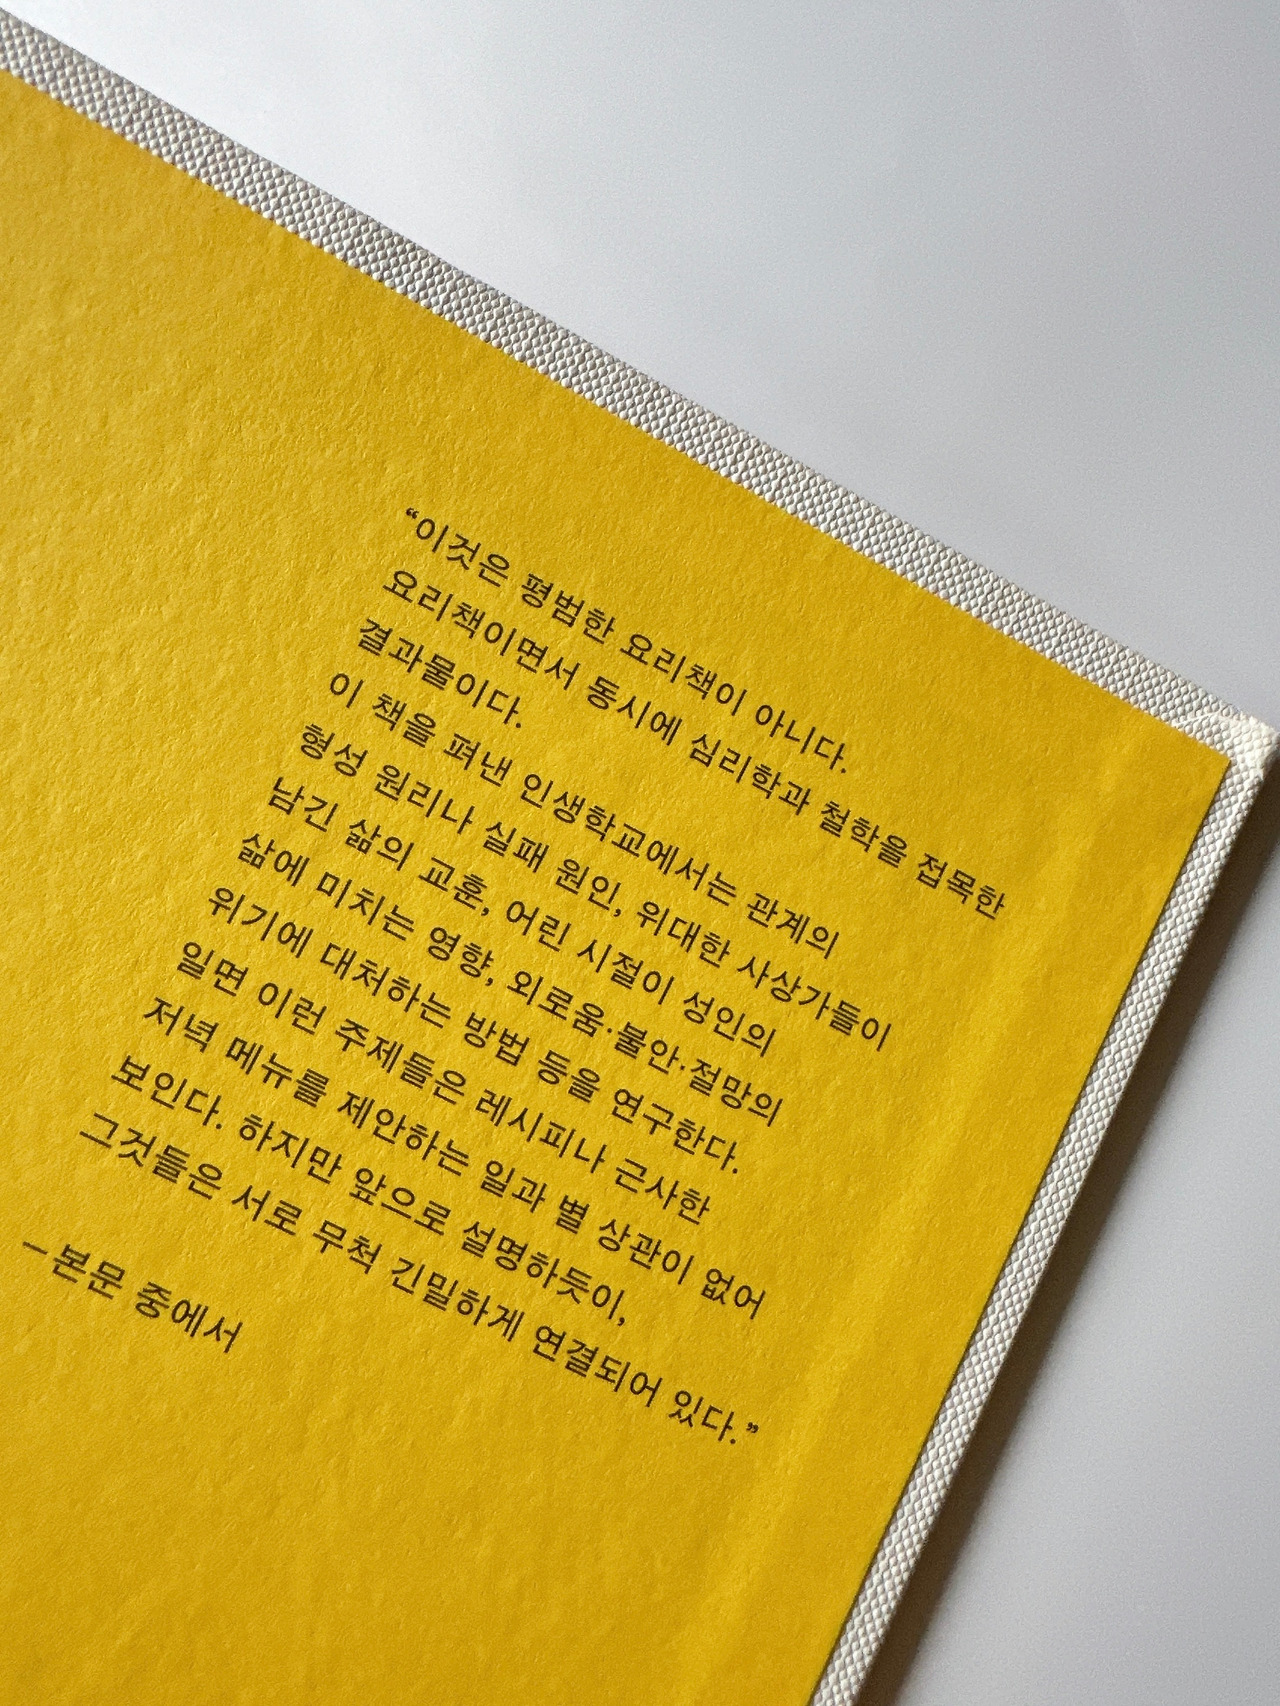 “이것은 평범한 요리책이 아니다.
요리책이면서 동시에 심리학과 철학을 접목한
결과물이다.
이 책을 펴낸 인생학교에서는 관계의
형성 원리나 실패 원인, 위대한 사상가들이
남긴 삶의 교훈, 어린 시절이 성인의
삶에 미치는 영향, 외로움·불안·절망의
위기에 대처하는 방법 등을 연구한다.
일면 이런 주제들은 레시피나 근사한
저녁 메뉴를 제안하는 일과 별 상관이 없어
보인다. 하지만 앞으로 설명하듯이,
그것들은 서로 무척 긴밀하게 연결되어 있다.”
–본문 중에서